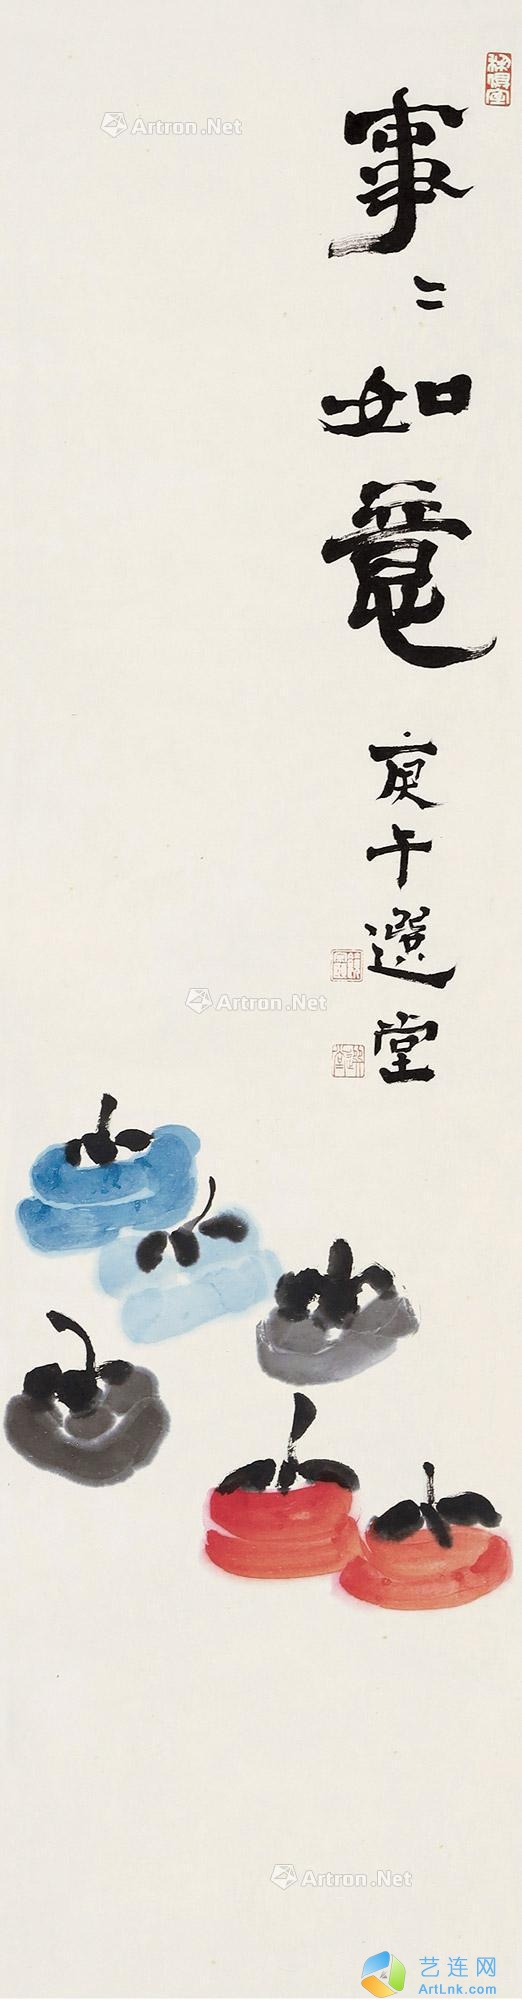 事〻如意
庚午選堂
梨俱室
Artron.Net
Artron.Net
Artron.Net
艺连网
ArtLnk.com